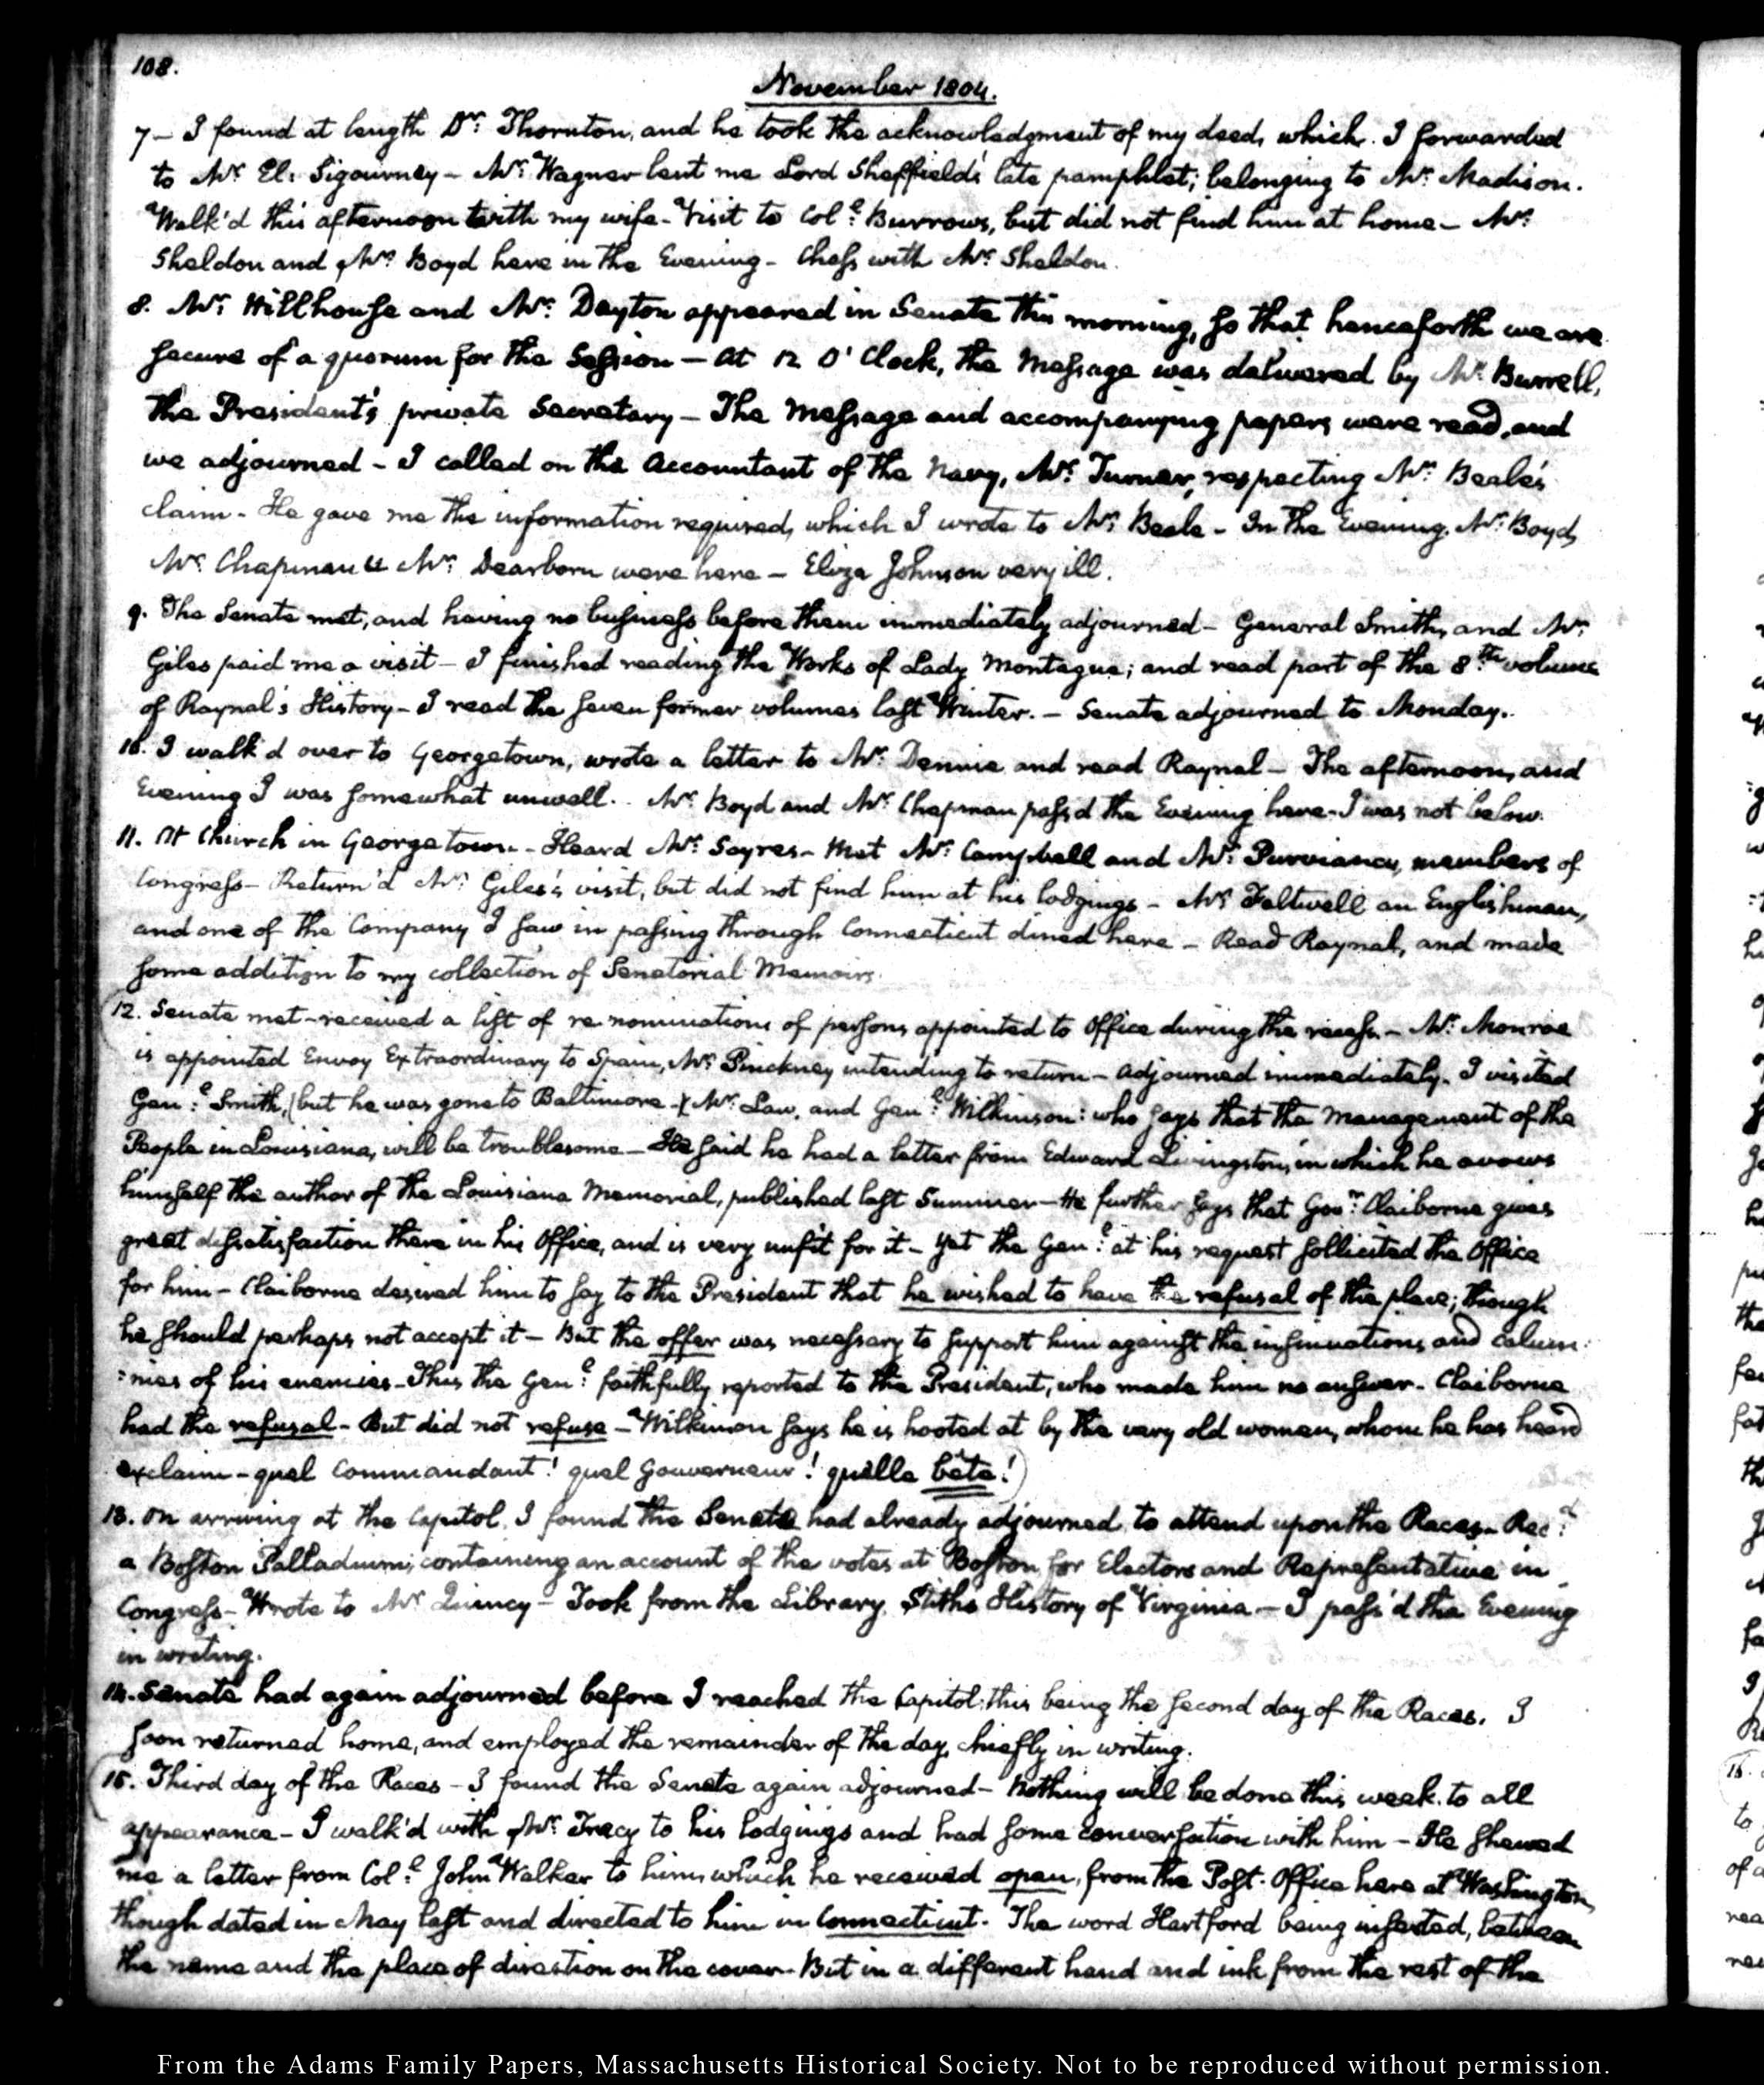 108.
November 1804.
7 — I found at length Dr: Thornton, and he took the acknowledgment of my deed, which I forwarded
to Mr El: Sigourney — Mr: Wagner lent me Lord Sheffield's late pamphlet; belonging to Mr: Madison.
Walk'd this afternoon with my wife — Visit to Coll: Burrows, but did not find him at home — Mr:
Sheldon and Mr: Boyd here in the Evening — Chess with Mr: Sheldon.
8. Mr: Hillhouse and Mr: Dayton appeared in Senate this morning, so that henceforth we are
secure of a quorum for the Session — At 12 O'Clock, the Message was delivered by Mr: Burrell,
the President's private Secretary — The Message and accompanying papers were read, and
we adjourned — I called on the Accountant of the Navy, Mr: Turner, respecting Mr: Beale's
claim — He gave me the information required, which I wrote to Mr: Beale — In the Evening, Mr: Boyd,
Mr: Chapman & Mr: Dearborn were here — Eliza Johnson very ill.
9. The Senate met, and having no business before them immediately adjourned — General Smith, and Mr:
Giles paid me a visit — I finished reading the Works of Lady Montague; and read part of the 8th: volume
of Raynal's History — I read the seven former volumes last Winter. — Senate adjourned to Monday.
10. I walk'd over to Georgetown, wrote a letter to Mr: Dennie and read Raynal — The afternoon, and
Evening I was somewhat unwell. Mr: Boyd and Mr: Chapman pass'd the Evening here — I was not below.
11. At Church in Georgetown — Heard Mr: Sayres — Met Mr: Campbell and Mr: Purviance, members of
Congress — Return'd Mr: Giles's visit, but did not find him at his lodgings — Mr: Feltwell an Englishman,
and one of the Company I saw in passing through Connecticut dined here — Read Raynal, and made
some addition to my collection of Senatorial Memoirs.
12. Senate met — received a list of re nominations of persons appointed to Office during the recess. — Mr: Monroe
is appointed Envoy Extraordinary to Spain, Mr: Pinckney intending to return — Adjourned immediately. I visited
Genl: Smith, (but he was gone to Baltimore —) Mr: Law, and Genl: Wilkinson: who says that the management of the
People in Louisiana, will be troublesome — He said he had a letter from Edward Livingston, in which he avows
himself the author of the Louisiana Memorial, published last Summer — He further says that Govr: Claiborne gives
great dissatisfaction there in his Office, and is very unfit for it — Yet the Genl: at his request sollicited the Office
for him — Claiborne desired him to say to the President that he wished to have the refusal of the place; though
he should perhaps not accept it — But the offer was necessary to support him against the insinuations and calum:
:nies of his enemies — This the Genl: faithfully reported to the President, who made him no answer — Claiborne
had the refusal — But did not refuse — Wilkinson says he is hooted at by the very old women, whom he has heard
exclaim — quel Commandant! quel Gouverneur! quelle bête!
13. On arriving at the Capitol, I found the Senate had already adjourned, to attend upon the Races — Recd:
a Boston Palladium, containing an account of the votes at Boston for Electors and Representative in
Congress — Wrote to Mr Quincy — Took from the Library, Stiths History of Virginia — I pass'd the Evening
in writing.
14. Senate had again adjourned before I reached the Capitol: this being the second day of the Races. I
soon returned home, and employed the remainder of the day, chiefly in writing.
15. Third day of the Races — I found the Senate again adjourned — Nothing will be done this week to all
appearance — I walk'd with Mr: Tracy to his lodgings and had some conversation with him — He shewed
me a letter from Coll: John Walker to him, which he received open, from the Post-Office here at Washington,
though dated in May last and directed to him in Connecticut. The word Hartford being inserted, between
the name and the place of direction on the cover — But in a different hand and ink from the rest of the
From the Adams Family Papers, Massachusetts Historical Society. Not to be reproduced without permission.